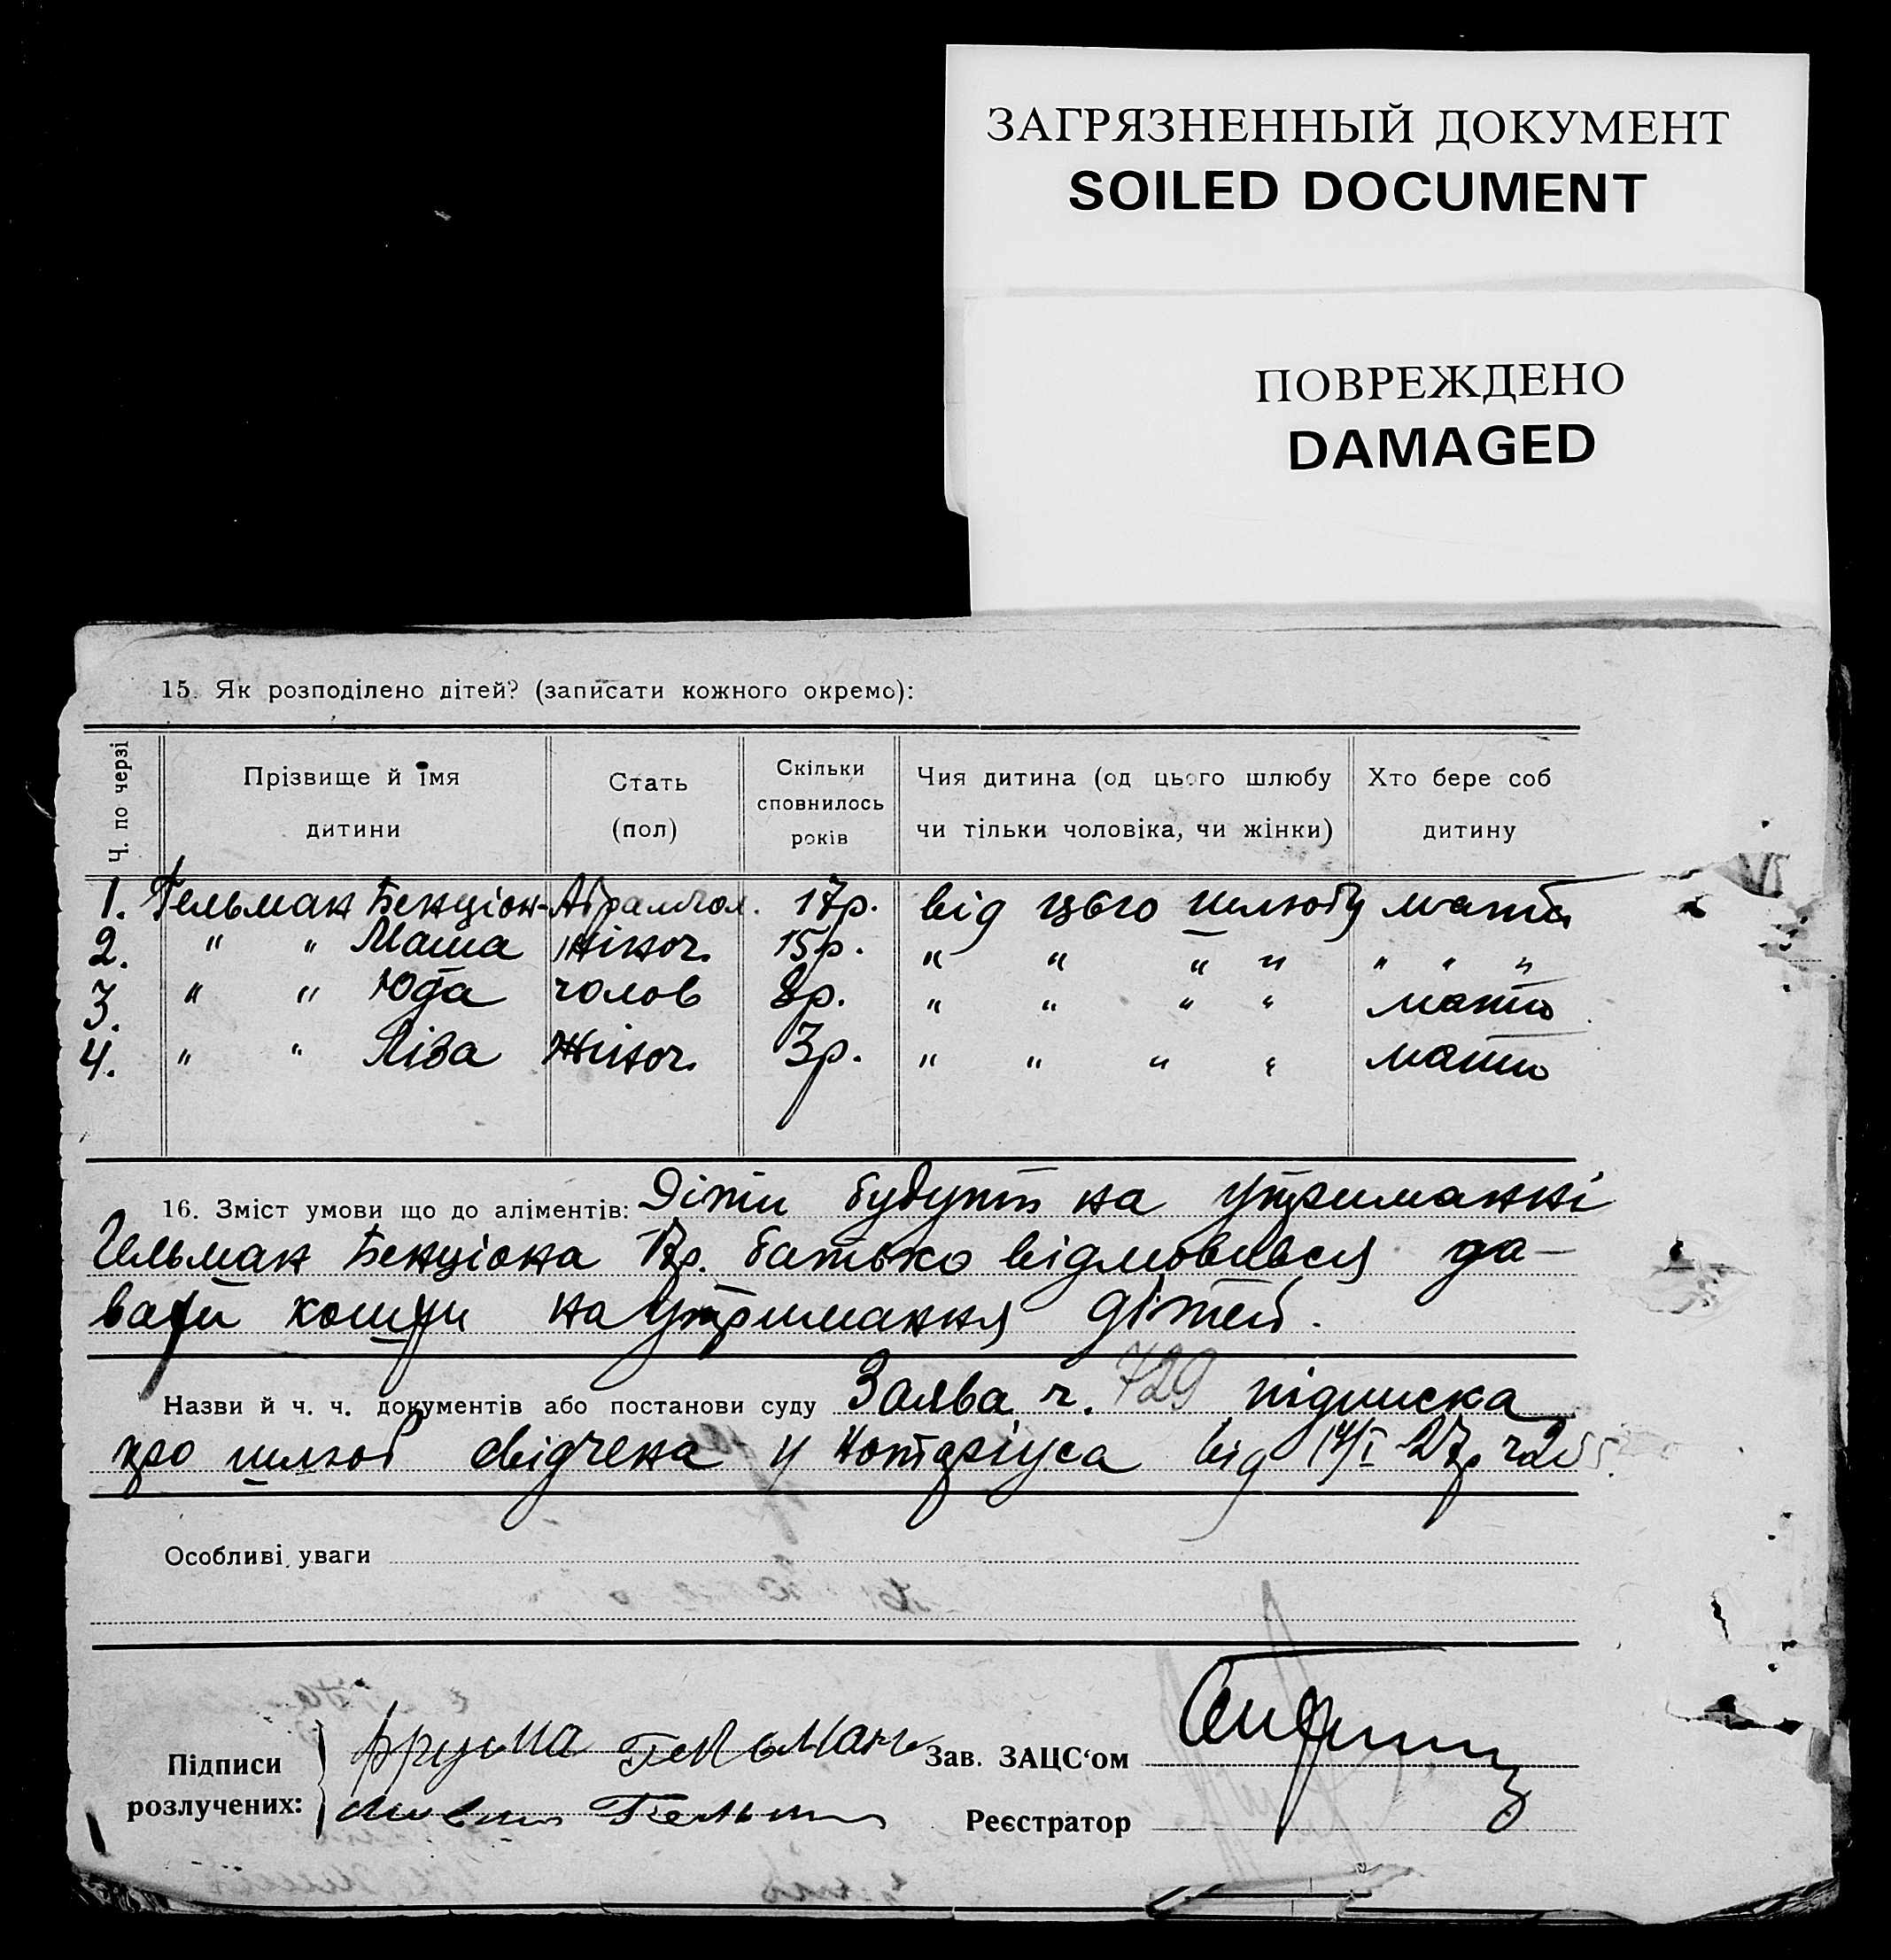 ЗАГРЯЗНЕННЫЙ ДОКУМЕНТ
SOILED DOCUMENT
ПОВРЕЖДЕНО
DAMAGED
15. Як розподілено дітей? (записати кожного окремо):
Ч. по черзі
Прізвище й їмя дитини
Стать (пол)
Скільки сповнилось років
Чия дитина (од цього шлюбу чи тільки чоловіка, чи жінки)
Хто бере соб дитину
1. Гельман Бенціон-Абрам чол. 17р. від цього шлюбу мати
2. " " Маша жіноч. 15р. " " " " " " "
3. " " Юда чолов 8р. " " " " мати
4. " " Ліза жіноч. 3р. " " " " мати
16. Зміст умови що до аліментів: Діти будуть на утриманні
Гельман Бенціона 17р. батько відмовився да-
вати кошти на утримання дітей.
Назви й ч. ч. документів або постанови суду Заява ч. 729 підписка
про шлюб свідчена у Нотаріуса від 14/I-27р
Особливі уваги
Підписи розлучених:
Фрума Гельмань
Зав. ЗАЦС‘ом
Реєстратор